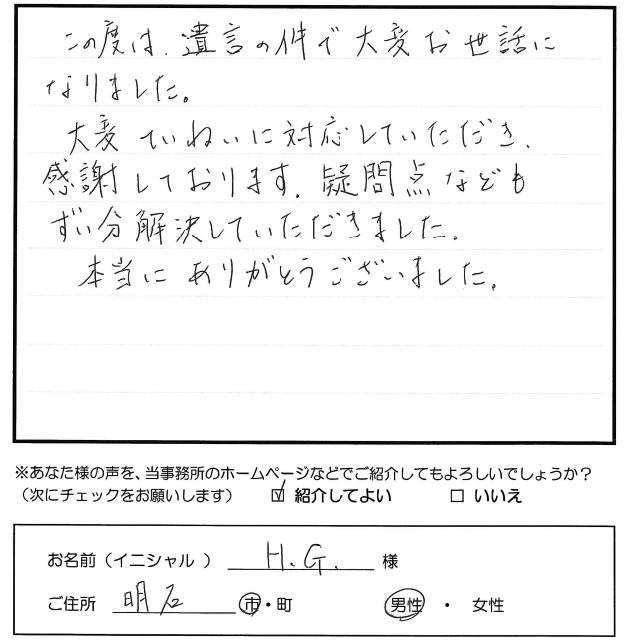 この度は、遺言の件で大変お世話に
なりました。
大変ていねいに対応していただき、
感謝しております。疑問点なども
ずい分解決していただきました。
本当にありがとうございました。
※あなた様の声を、当事務所のホームページなどでご紹介してもよろしいでしょうか?
(次にチェックをお願いします) ☑ 紹介してよい □ いいえ
お名前(イニシャル) H.G. 様
ご住所 明石 市・町 男性 ・ 女性